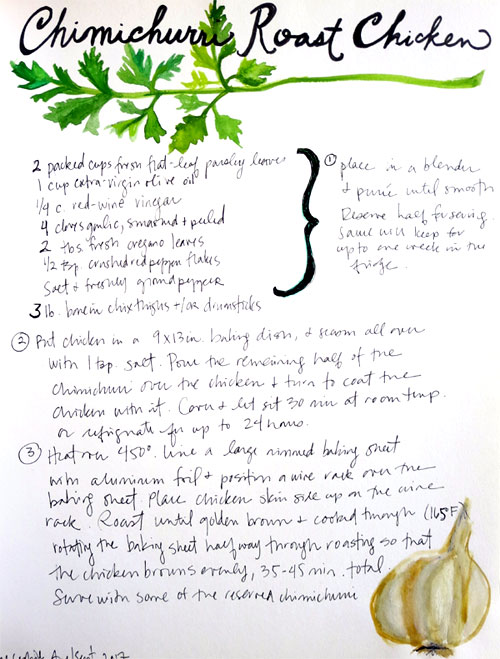 Chimichurri Roast Chicken
2 packed cups fresh flat-leaf parsley leaves
1 cup extra-virgin olive oil
1/4 c. red-wine vinegar
4 cloves garlic, smashed + peeled
2 tbs. fresh oregano leaves
1/2 tsp. crushed red pepper flakes
Salt + freshly ground pepper
3 lb. bone in chix thighs +/or drumsticks
① place in a blender
+ purée until smooth
Reserve half for serving.
Sauce will keep for
up to one week in the
fridge.
② Put chicken in a 9x13 in. baking dish, + season all over
with 1 tsp. salt. Pour the remaining half of the
chimichurri over the chicken + turn to coat the
chicken with it. Cover + let sit 30 min at room temp.
or refrigerate for up to 24 hours.
③ Heat oven 450°. Line a large rimmed baking sheet
with aluminum foil + position a wire rack over the
baking sheet. Place chicken skin side up on the wire
rack. Roast until golden brown + cooked through (165°F)
rotating the baking sheet halfway through roasting so that
the chicken browns evenly, 35-45 min. total.
Serve with some of the reserved chimichurri
2017